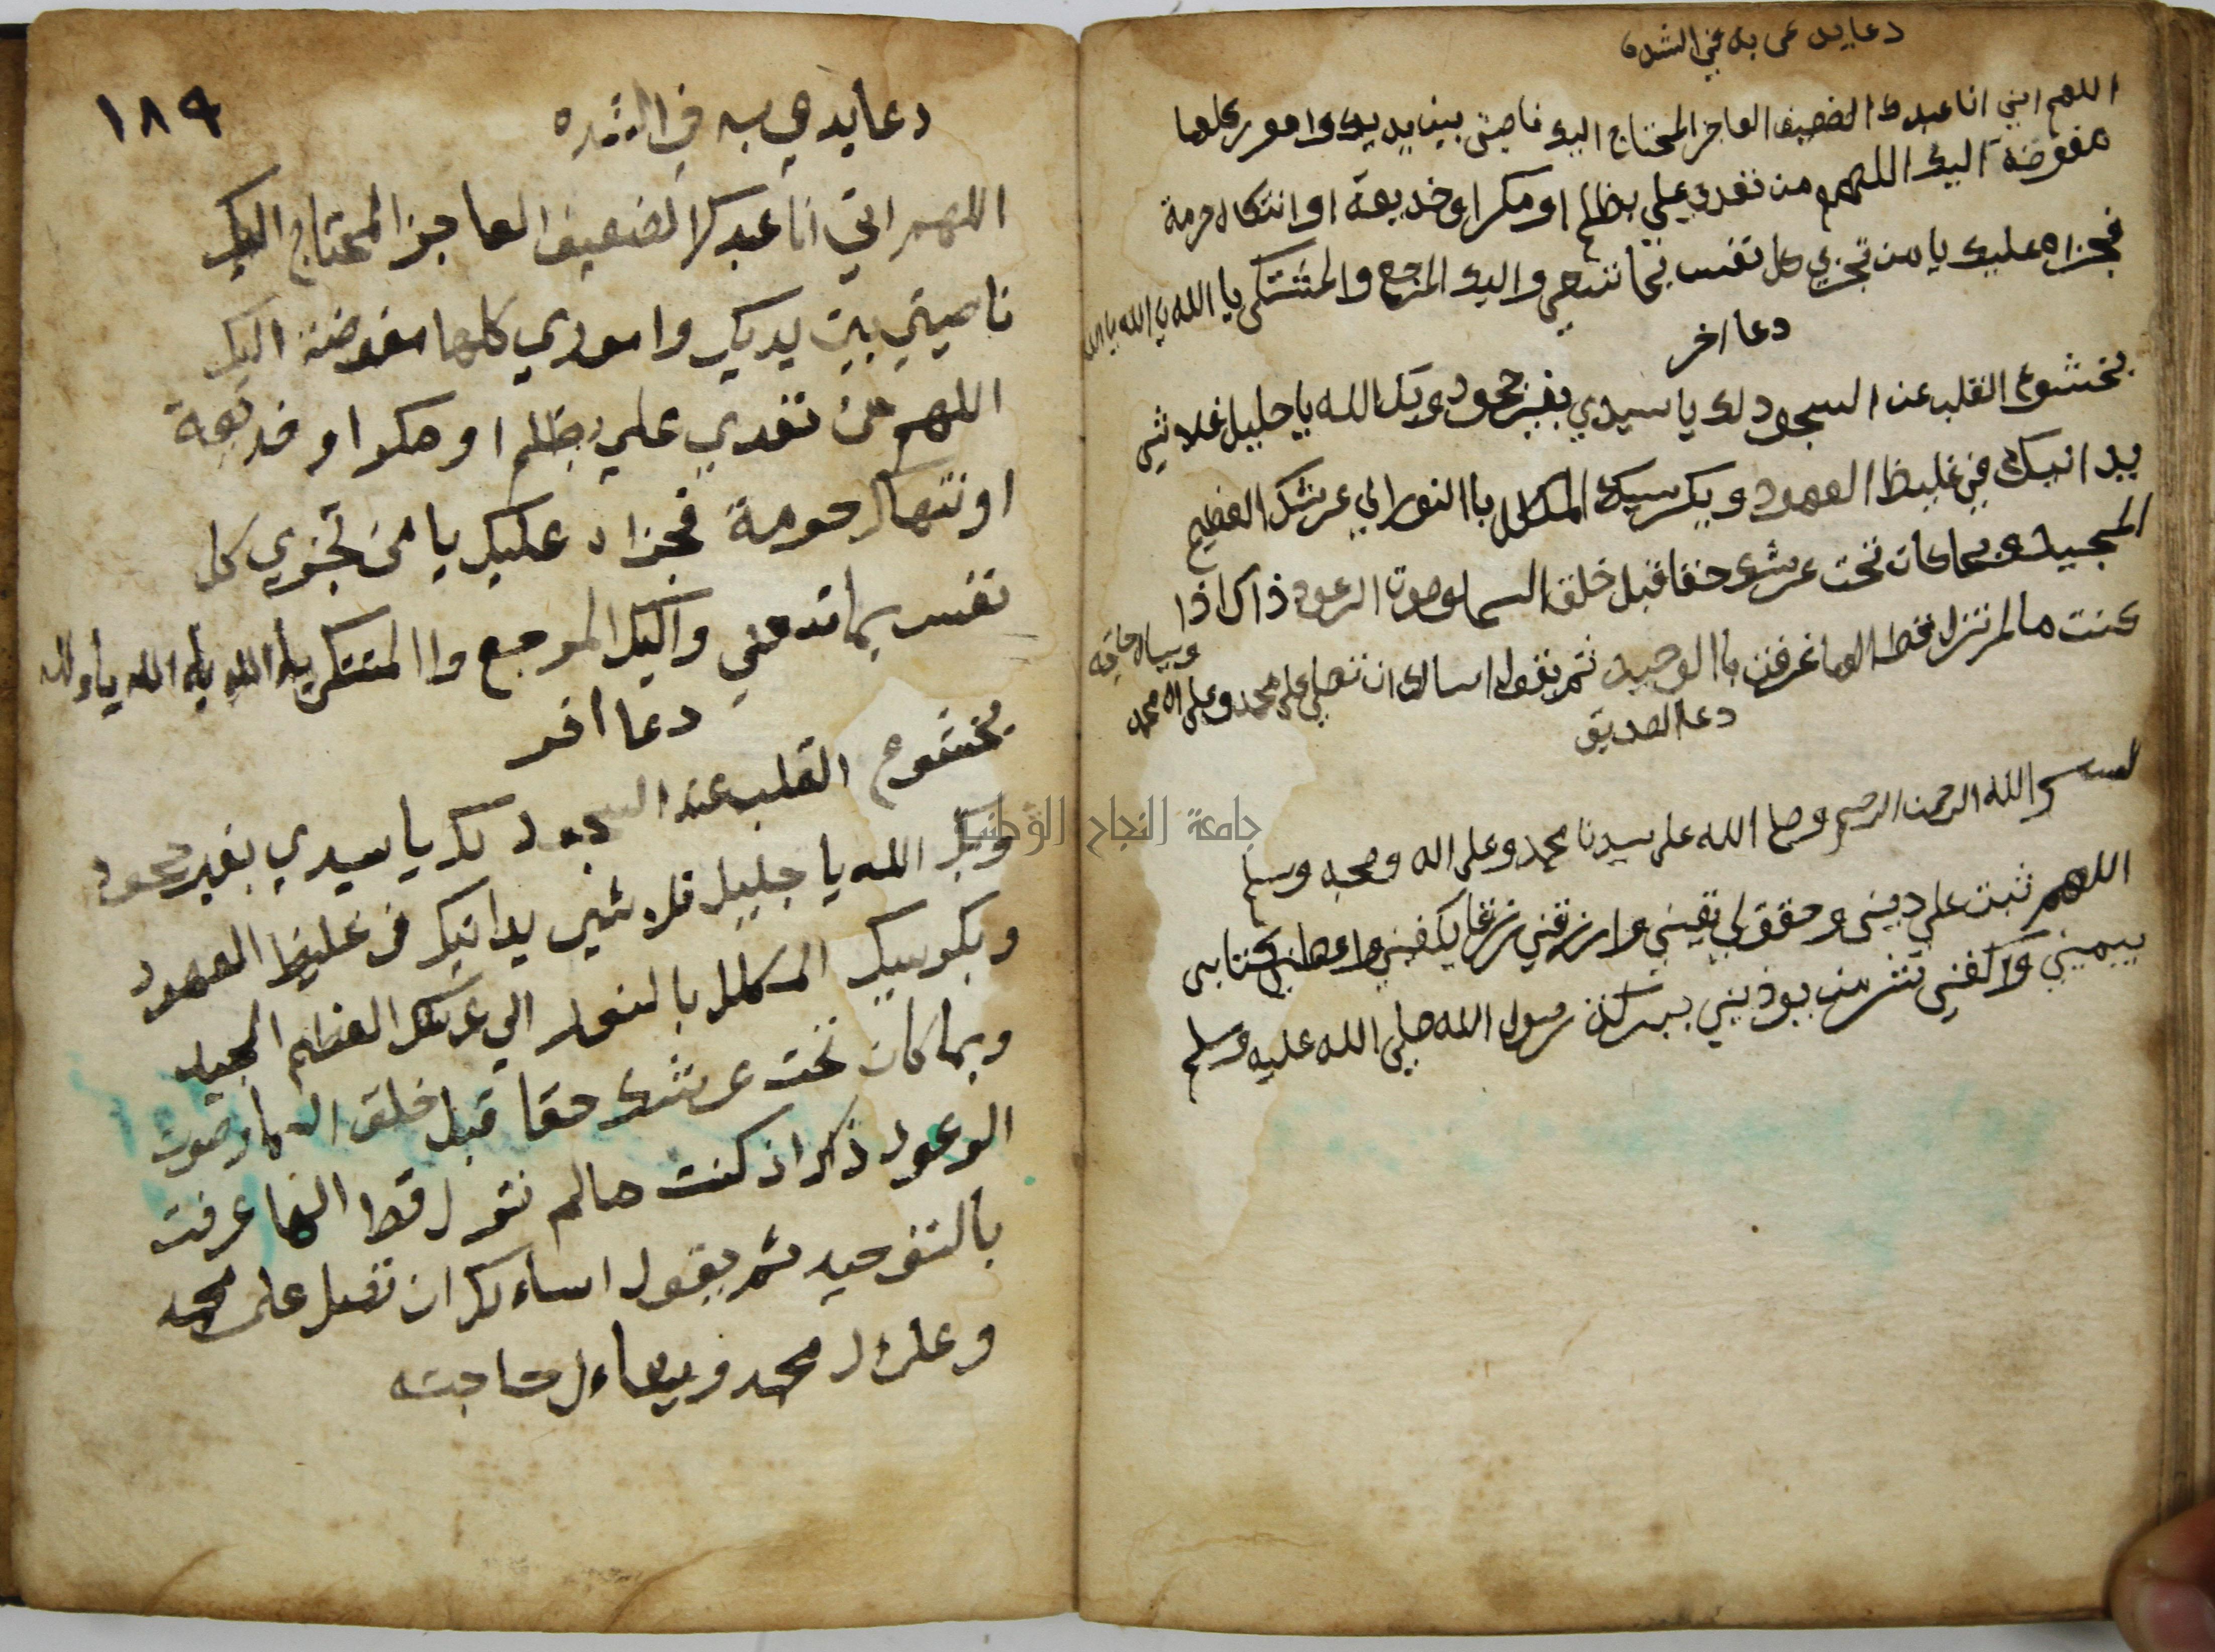 دعا يدعى به في الشده
اللهم اني انا عبدك الضعيف العاجز المحتاج اليك ناصيتي بين يديك وامور كلها
مفوضة اليك اللهم من تعدي علي بظلم او مكر او خديعة او انتكاك حرمة
فجزاه عليك يا من تجزي كل نفس بما تسعي واليك المرجع والمشتكى يا الله يا الله يا الله
دعا اخر
بخشوع القلب عند السجود لك يا سيدي بغير جحود وبك الله يا جليل فلا شي
يدانيك في غليظ العهود وبكرسيك المكلل باالنور الي عرشك العظيم
المجيد وبما كان تحت عرشك حقا قبل خلق السما وصوت الرعود ذاك اذا
كنت مالم تزل قط الها عرفت باالوحيد ثم يقول اسالك ان تصلي على محمد وعلى ال محمد
ويسال حاجته
دعا الصديق
بسم الله الرحمن الرحيم وصلى الله على سيدنا محمد وعلى اله وصحبه وسلم
اللهم ثبت علي ديني وحقق لي يقيني وارزقني رزقا يكفيني واعطني كتابى
بيميني واكفني شر من يوذيني ببركة رسول الله صلى الله عليه وسلم
١٨٩
دعا يدعي به في الشده
اللهم اني انا عبدك الضعيف العاجز المحتاج اليك
ناصيتي بين يديك واموري كلها مفوضة اليك
اللهم من تعدي علي بظلم او مكر او خديعة
او نتهاك حرمة فجزاه عليك يا من تجزي كل
نفس بما تسعي واليك المرجع واالمشتكى يا الله يا الله يا الله
دعا اخر
بخشوع القلب عند السجود لك يا سيدي بغير جحود
وبك الله يا جليل فلا شي يدانيك في غليظ العهود
وبكرسيك المكلل بالنور الي عرشك العظيم المجيد
وبما كان تحت عرشك حقا قبل خلق السما وصوت
الرعود ذكر اذ كنت مالم تزل قط الها عرفت
بالتوحيد ثم يقول اساءلك ان تصل على محمد
وعلى ال محمد ويساءل حاجته
جامعة النجاح الوطنية